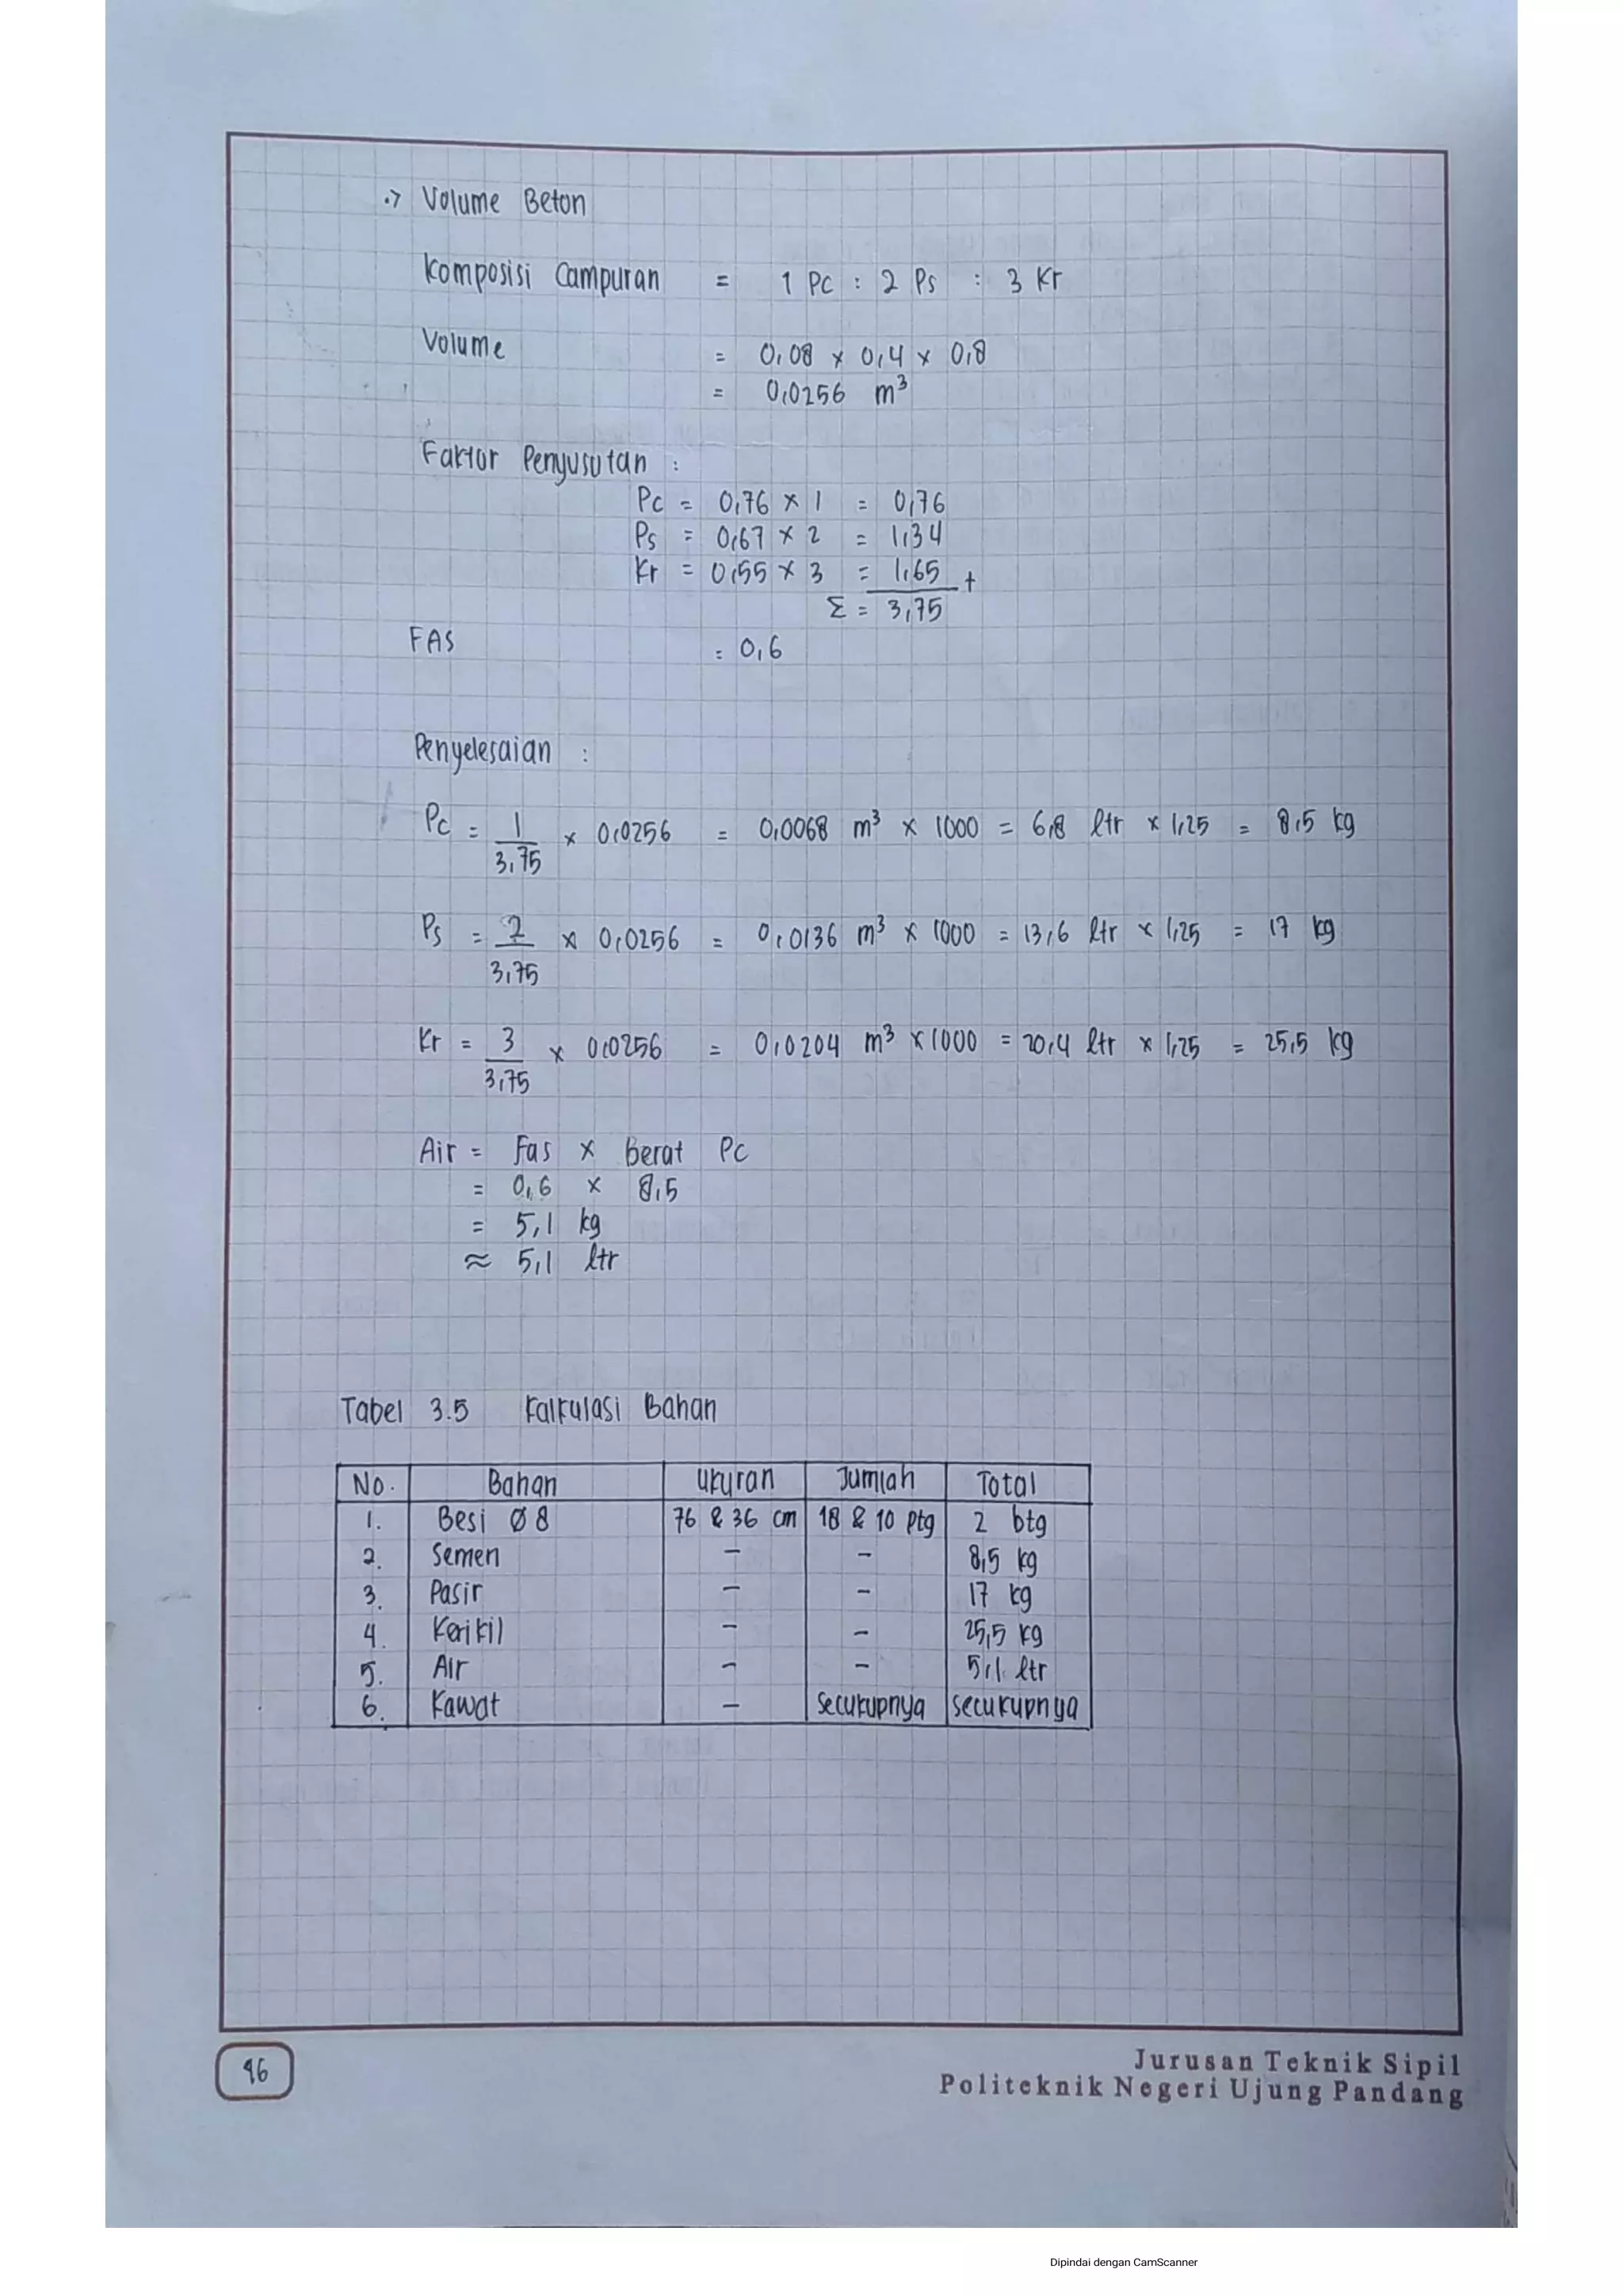 •> Volume Beton
Komposisi Campuran = 1 Pc : 2 Ps : 3 Kr
Volume = 0,08 x 0,4 x 0,8
= 0,0256 m³
Faktor Penyusutan :
Pc = 0,76 x 1 = 0,76
Ps = 0,67 x 2 = 1,34
Kr = 0,55 x 3 = 1,65 +
Σ = 3,75
FAS = 0,6
Penyelesaian :
Pc = 1/3,75 x 0,0256 = 0,0068 m³ x 1000 = 6,8 ltr x 1,25 = 8,5 kg
Ps = 2/3,75 x 0,0256 = 0,0136 m³ x 1000 = 13,6 ltr x 1,25 = 17 kg
Kr = 3/3,75 x 0,0256 = 0,0204 m³ x 1000 = 20,4 ltr x 1,25 = 25,5 kg
Air = Fas x berat Pc
= 0,6 x 8,5
= 5,1 kg
≈ 5,1 ltr
Tabel 3.5 Kalkulasi Bahan
No. Bahan Ukuran Jumlah Total
1. Besi Ø 8 76 & 36 cm 18 & 10 ptg 2 btg
2. Semen - - 8,5 kg
3. Pasir - - 17 kg
4. Kerikil - - 25,5 kg
5. Air - - 5,1 ltr
6. Kawat - secukupnya secukupnya
Jurusan Teknik Sipil
Politeknik Negeri Ujung Pandang
Dipindai dengan CamScanner